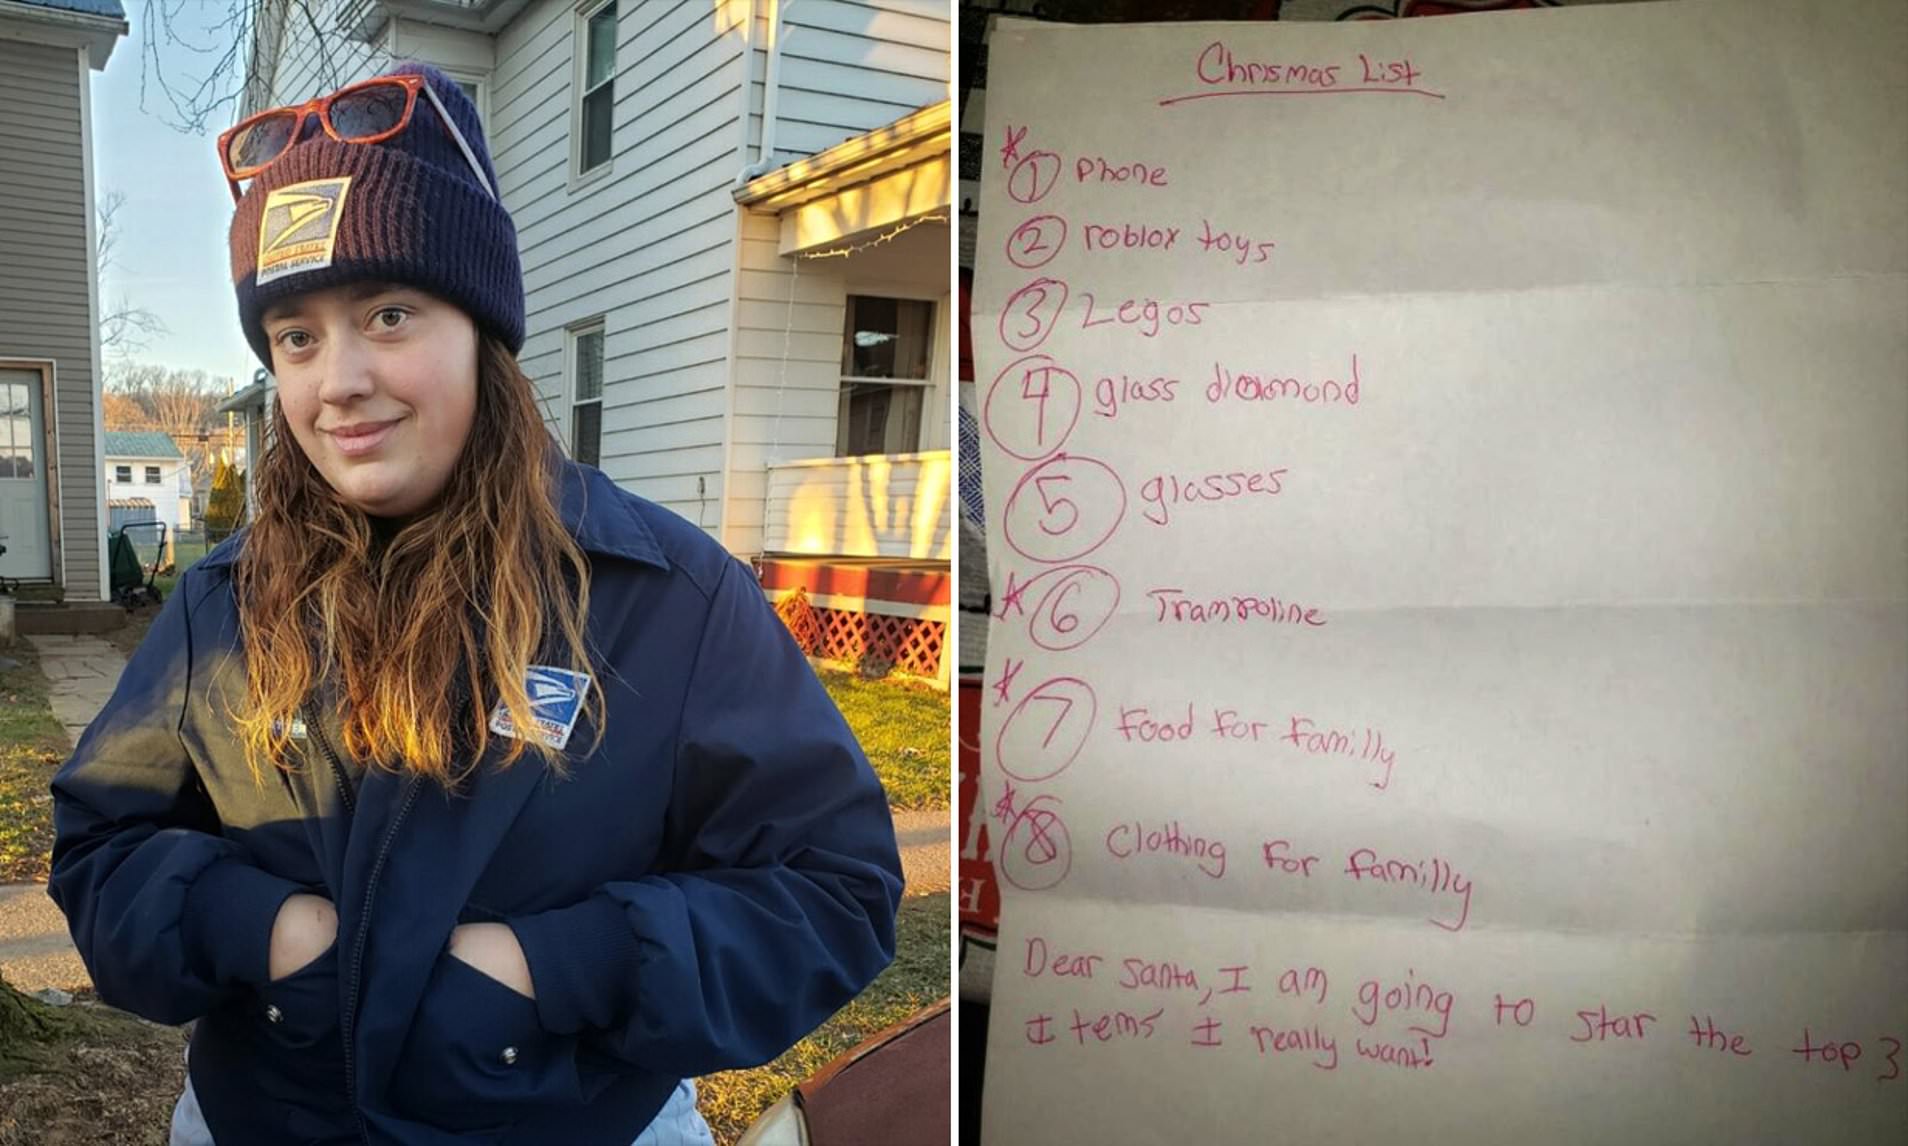 UNITED STATES
POSTAL SERVICE
POSTAL SERVICE
Chrismas List
* 1 Phone
2 roblox toys
3 Legos
4 glass diamond
5 glasses
* 6 Trampoline
* 7 Food For Familly
* 8 Clothing For Familly
Dear Santa, I am going to star the top 3
Items I really want!